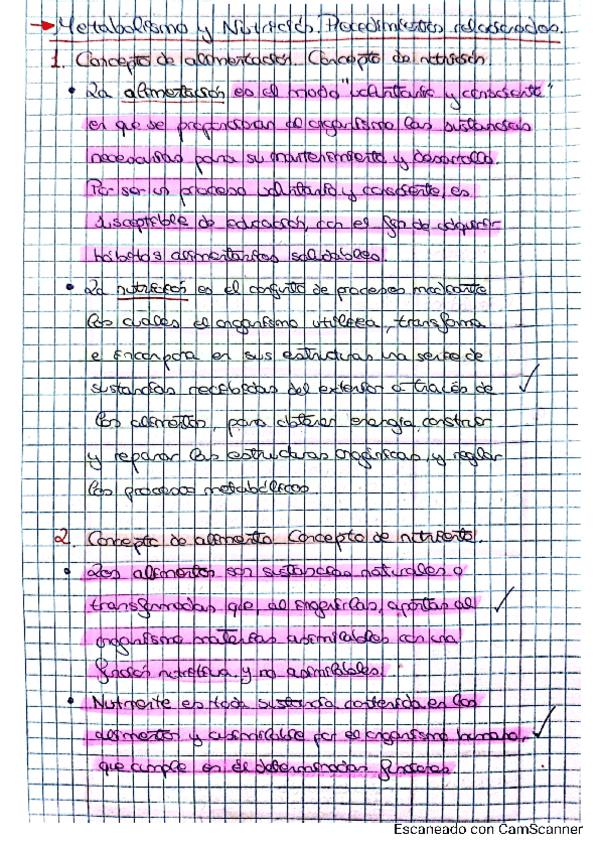 → Metabolismo y Nutrición. Procedimientos relacionados.
1. Concepto de alimentación. Concepto de nutrición.
• La alimentación es el modo "voluntario y consciente"
en que se proporcionan al organismo las sustancias
necesarias para su mantenimiento y desarrollo.
Por ser un proceso voluntario y consciente, es
susceptible de educación, con el fin de adquirir
hábitos alimentarios saludables.
• La nutrición es el conjunto de procesos mediante
los cuales el organismo utiliza, transforma
e incorpora en sus estructuras una serie de
sustancias recibidas del exterior a través de
los alimentos, para obtener energía, construir
y reparar las estructuras orgánicas, y regular
los procesos metabólicos.
2. Concepto de alimento. Concepto de nutriente.
• Los alimentos son sustancias naturales o
transformadas que, al ingerirlas, aportan al
organismo materias asimilables con una
función nutritiva y no asimilables.
• Nutriente es toda sustancia contenida en los
alimentos y asimilable por el organismo humano,
que cumple en él determinadas funciones.
Escaneado con CamScanner